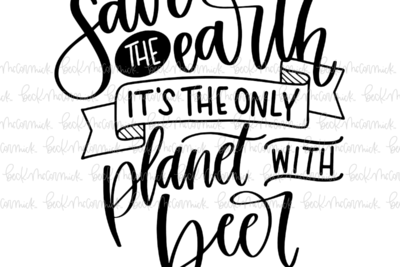 Save
THE earth
IT'S THE ONLY
planet WITH
beer